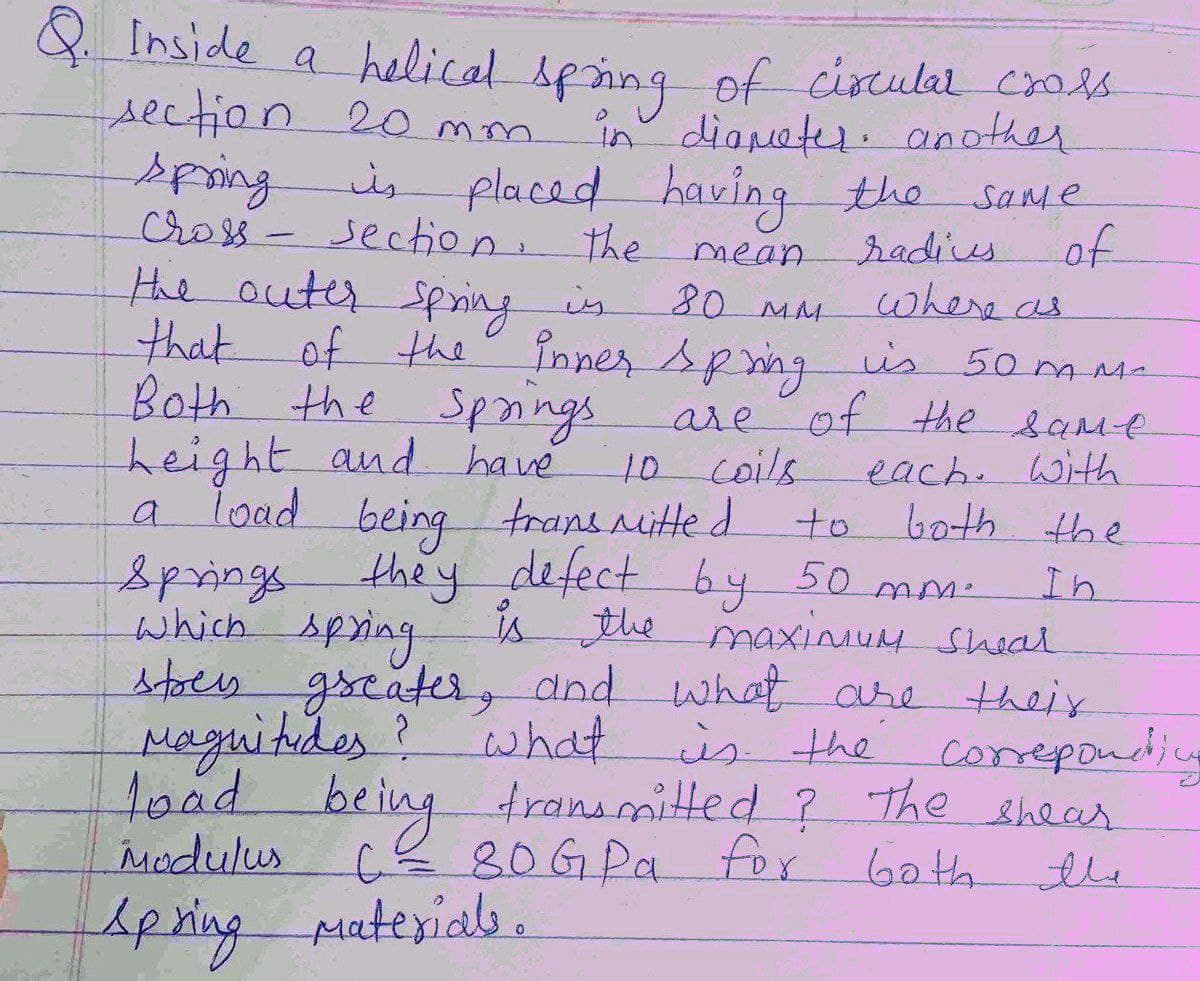 Q. Inside a helical spring of circular cross
section 20 mm in diameter. another
spring is placed having the same
cross - section. the mean radius of
the outer spring is 80 mm where as
that of the inner spring is 50 mm.
Both the springs are of the same
height and have 10 coils each. With
a load being transmitted to both the
springs they defect by 50 mm. In
which spring is the maximum shear
stress greater, and what are their
Magnitudes? what is the correponding
load being transmitted? The shear
Modulus C = 80 GPa for both the
spring materials.